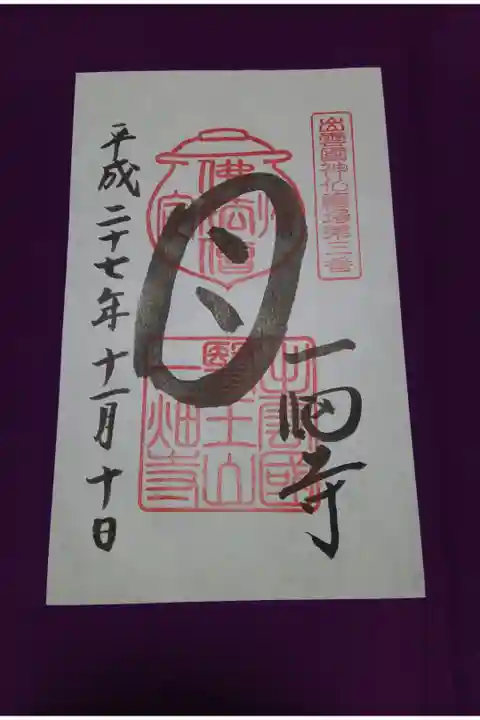 出雲國神仏霊場第三番
一畑寺
出雲國
醫王山
一畑寺
佛法僧
平成二十七年十一月十日